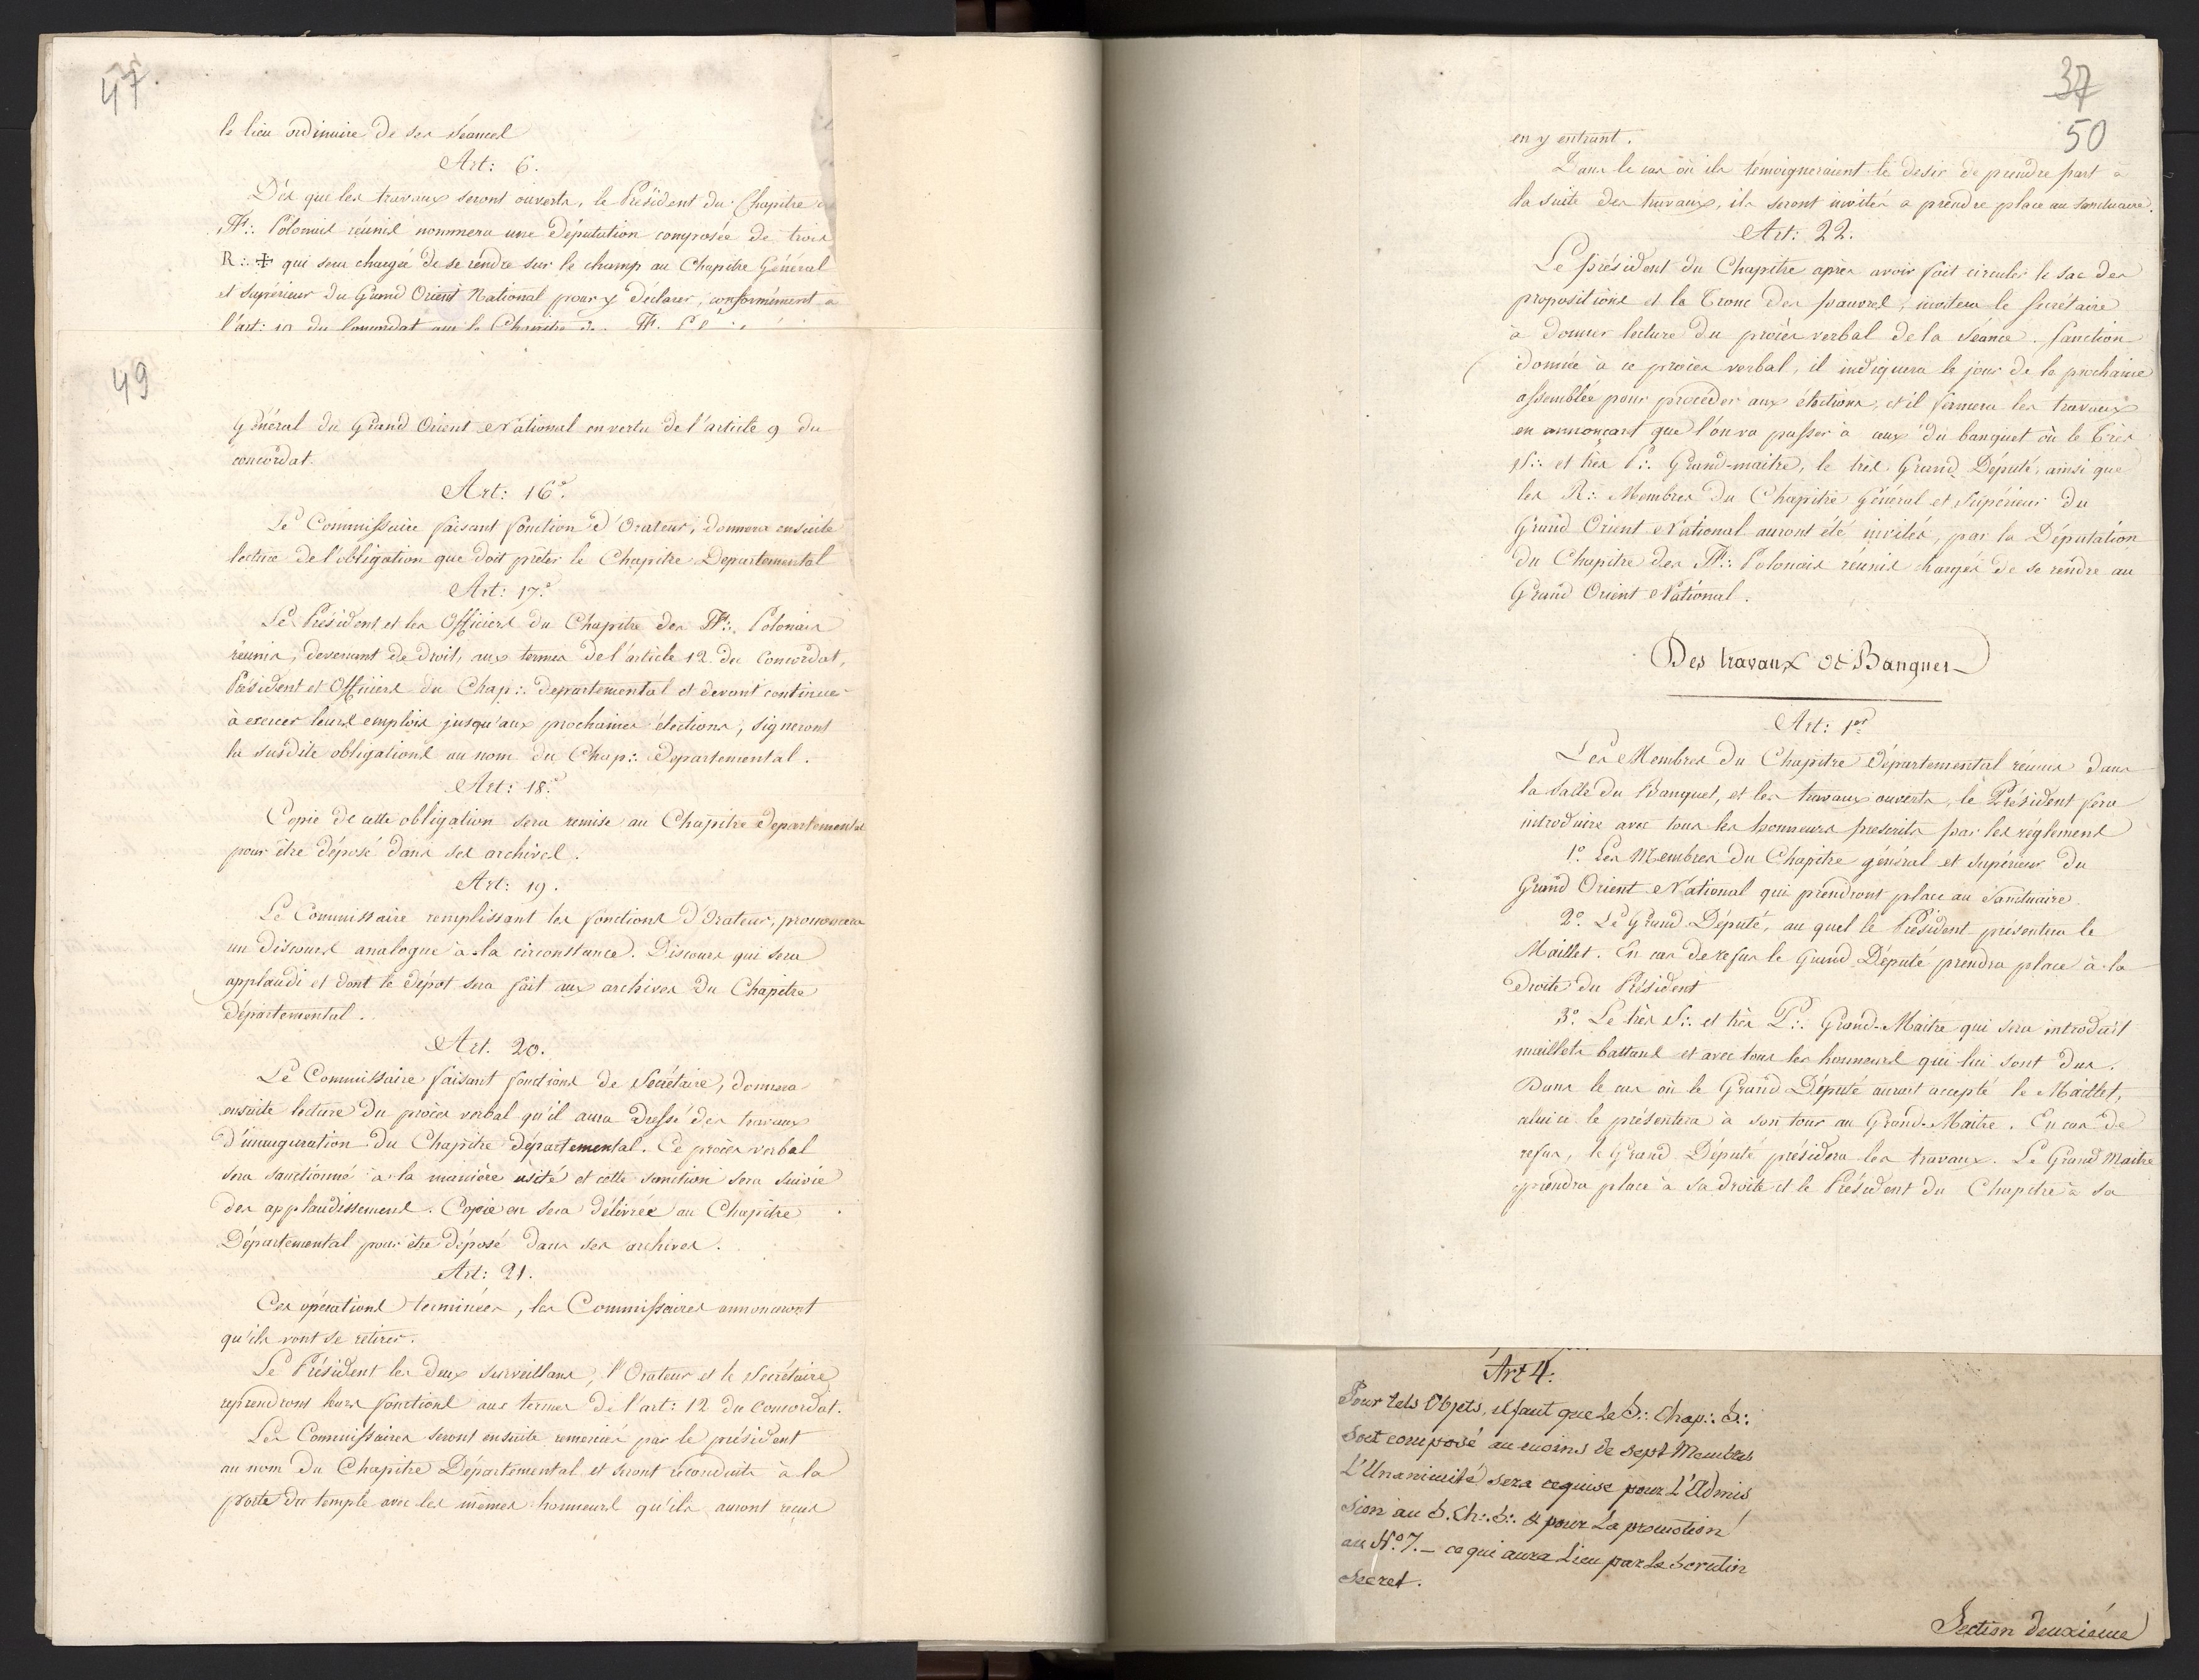 47
le lieu ordinaire de ses séances
Art: 6.
Dès que les travaux seront ouverts, le Président du Chapitre
FF∴ Polonais réunis nommera une députation composée de trois
R∴ ✠ qui sera chargée de se rendre sur le champ au Chapitre Général
et Supérieur du Grand Orient National pour y déclarer, conformément à
l'art: 10 du Concordat que le Chapitre des FF.
49
Général du Grand Orient National en vertu de l'article 9 du
concordat.
Art: 16°.
Le Commissaire faisant fonction d'Orateur, donnera ensuite
lecture de l'obligation que doit prêter le Chapitre Departemental
Art: 17°
Le Président et les Officiers du Chapitre des FF∴ Polonais
réunis, devenant de droit, aux termes de l'article 12 du Concordat,
Président et Officiers du Chap∴ departemental et devant continuer
à exercer leurs emplois jusqu'aux prochaines élections, signeront
la susdite obligations au nom du Chap∴ Departemental.
Art: 18°
Copie de cette obligation sera remise au Chapitre Departemental
pour être déposé dans ses archives.
Art: 19.
Le Commissaire remplissant les fonctions d'Orateur, prononcera
un discours analogue à la circonstance. Discours qui sera
applaudi et dont le dépot sera fait aux archives du Chapitre
départemental.
Art. 20.
Le Commissaire faisant fonctions de Secrétaire, donnera
ensuite lecture du procès verbal qu'il aura dressé des travaux
d'inauguration du Chapitre départemental. Ce procès verbal
sera sanctionné à la manière usité et cette sanction sera suivie
des applaudissements. Copie en sera délivrée au Chapitre
Départemental pour être déposé dans ses archives.
Art: 21.
Ces opérations terminées, les Commissaires annonceront
qu'ils vont se retirer.
Le Président les deux surveillans, l'Orateur et le Secrétaire
reprendront leurs fonctions aux termes de l'art: 12 du Concordat.
Les Commissaires seront ensuite remerciés par le président
au nom du Chapitre Départemental et seront reconduits à la
porte du temple avec les mêmes honneurs qu'ils auront reçus
37
50
en y entrant.
Dans le cas où ils témoigneraient le desir de prendre part à
la suite des travaux, ils seront invités a prendre place au sanctuaire.
Art: 22.
Le président du Chapitre après avoir fait circuler le sac des
propositions et le Tronc des pauvres, invitera le secrétaire
à donner lecture du procès verbal de la séance. Sanction
donnée à ce procès verbal, il indiquera le jour de la prochaine
assemblée pour procéder aux élections, et il fermera les travaux
en annonçant que l'on va passer à ceux du banquet où le Très
S∴ et très P∴ Grand-maitre, le très Grand Député, ainsi que
les R∴ Membres du Chapitre général et Supérieur du
Grand Orient National auront été invités, par la Députation
du Chapitre des FF∴ Polonais réunis chargés de se rendre au
Grand Orient National.
Des travaux de Banquet
Art: 1er
Les Membres du Chapitre Départemental réunis dans
la Salle du Banquet, et les travaux ouverts, le Président fera
introduire avec tous les honneurs prescrits par les règlemens
1°. Les Membres du Chapitre général et supérieur du
Grand Orient National qui prendront place au Sanctuaire.
2°. Le Grand Député, au quel le Président présentera le
Maillet. En cas de refus le Grand Député prendra place à la
droite du Président
3°. Le très S∴ et très P∴ Grand-Maitre qui sera introduit
maillets battans et avec tous les honneurs qui lui sont dus.
Dans le cas où le Grand Député aurait accepté le Maillet,
celui ci le présentera à son tour au Grand-Maitre. En cas de
refus, le Grand Député présidera les travaux. Le Grand Maitre
prendra place à sa droite et le Président du Chapitre à sa
Art 4.
Pour tels Objets, il faut que le S∴ Chap∴ S∴
soit composé au moins de sept Membres
L'Unanimité sera requise pour l'Admis
sion au S. Ch∴ S∴ & pour la promotion
au N°. 7. — ce qui aura Lieu par Le Scrutin
Secret.
Section deuxième